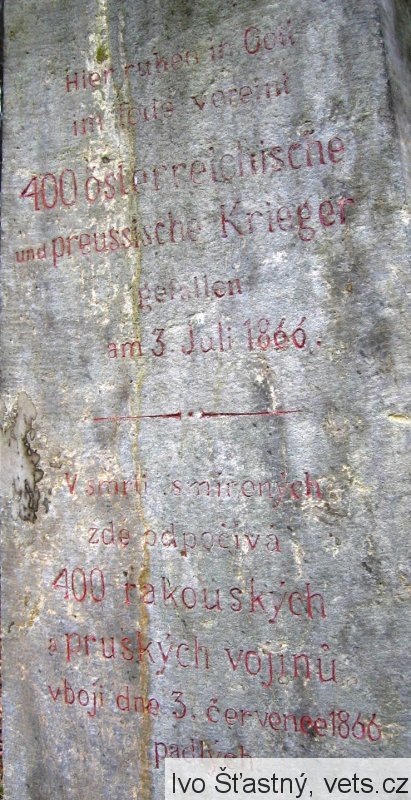 Hier ruhen in Gott
im Tode vereint
400 österreichische
und preussische Krieger
gefallen
am 3. Juli 1866.
V smrti smířených
zde odpočívá
400 rakouských
a pruských vojínů
v boji dne 3. července 1866
padlých
Ivo Šťastný, vets.cz